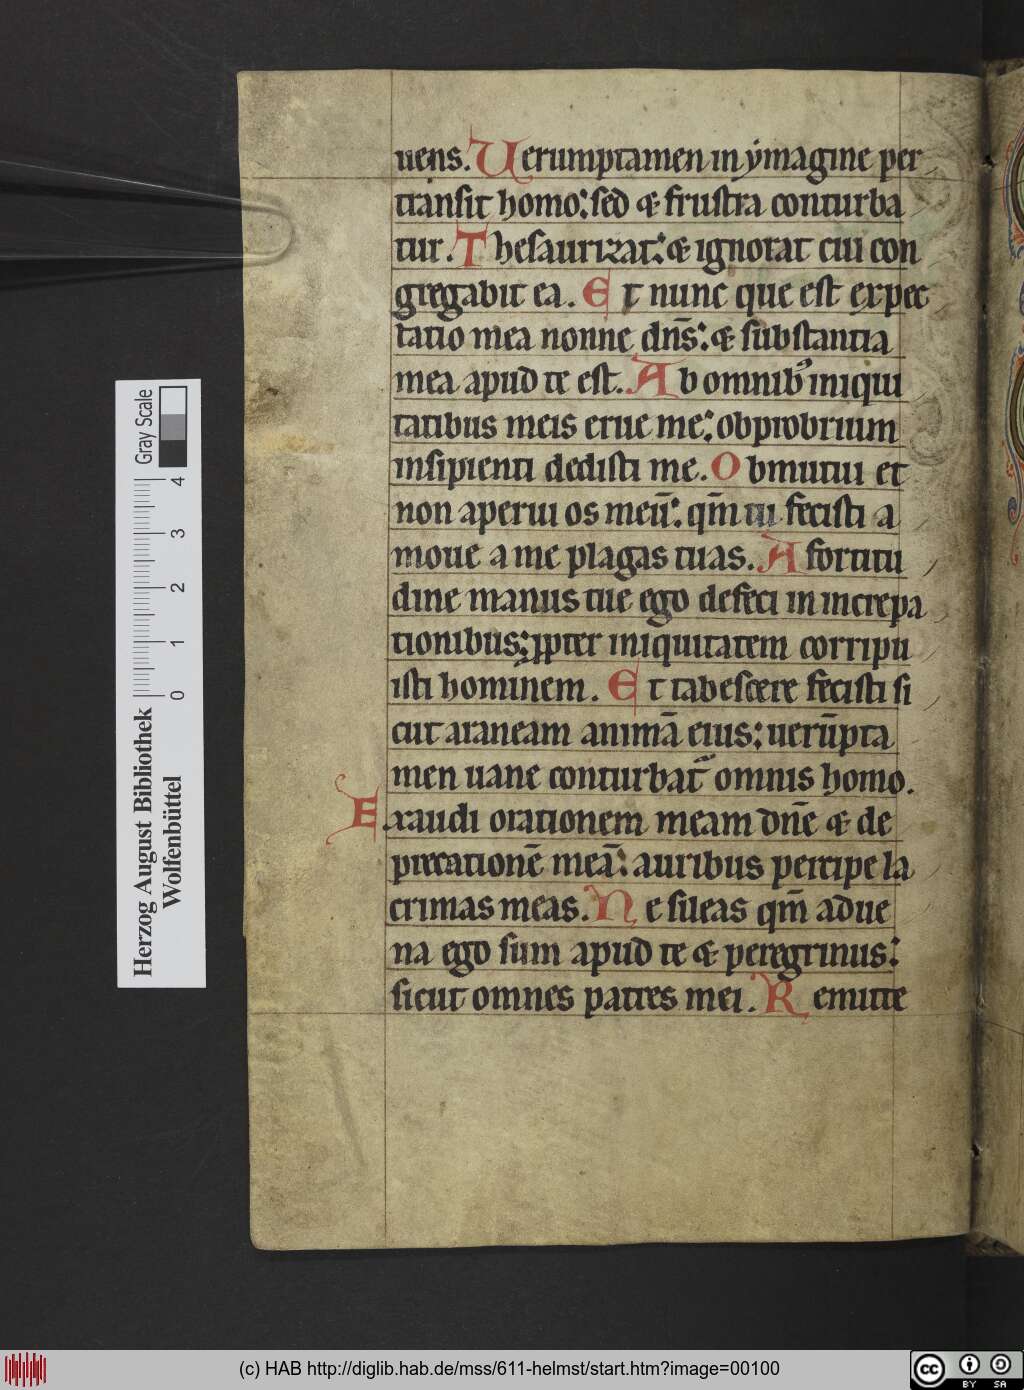 uens. Uerumptamen in ẏmagine per
transit homo: sed & frustra conturba
tur. Thesaurizat: & ignorat cui con
gregabit ea. Et nunc que est expec
tatio mea nonne dn̄s: & substantia
mea apud te est. Ab omnibꝰ iniqui
tatibus meis erue me: obprobrium
insipienti dedisti me. Obmutui et
non aperui os meū: qm̄ tu fecisti a
moue a me plagas tuas. A fortitu
dine manus tue ego defeci in increpa
tionibus: ꝓpter iniquitatem corripu
isti hominem. Et tabescere fecisti si
cut araneam animā eius: uerūpta
men uane conturbat᷑ omnis homo.
Exaudi orationem meam dn̄e & de
precationē meā: auribus percipe la
crimas meas. Ne sileas qm̄ adue
na ego sum apud te & peregrinus:
sicut omnes patres mei. Remitte
Herzog August Bibliothek
Wolfenbüttel
0 1 2 3 4
Gray Scale
(c) HAB http://diglib.hab.de/mss/611-helmst/start.htm?image=00100
cc BY SA